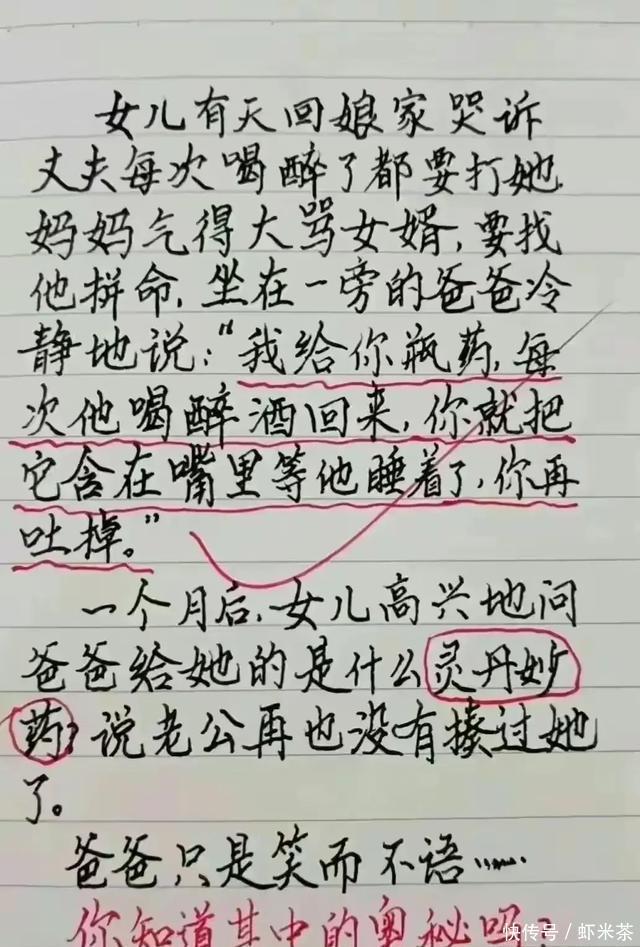 女儿有天回娘家哭诉
丈夫每次喝醉了都要打她
妈妈气得大骂女婿,要找
他拼命,坐在一旁的爸爸冷
静地说:“我给你瓶药,每
次他喝醉酒回来,你就把
它含在嘴里等他睡着了,你再
吐掉。”
一个月后,女儿高兴地问
爸爸给她的是什么灵丹妙
药?说老公再也没有揍过她
了。
爸爸只是笑而不语……
你知道其中的奥秘吗?
快传号/虾米茶